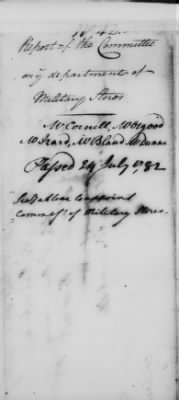 No 42
Report of the Committee
on department of
Military Stores
Mr Cornell, Mr Osgood
Mr Izard, Mr Bland Mr Duane
Passed 24 July 1782
to appoint
Commissy. of Military Stores.